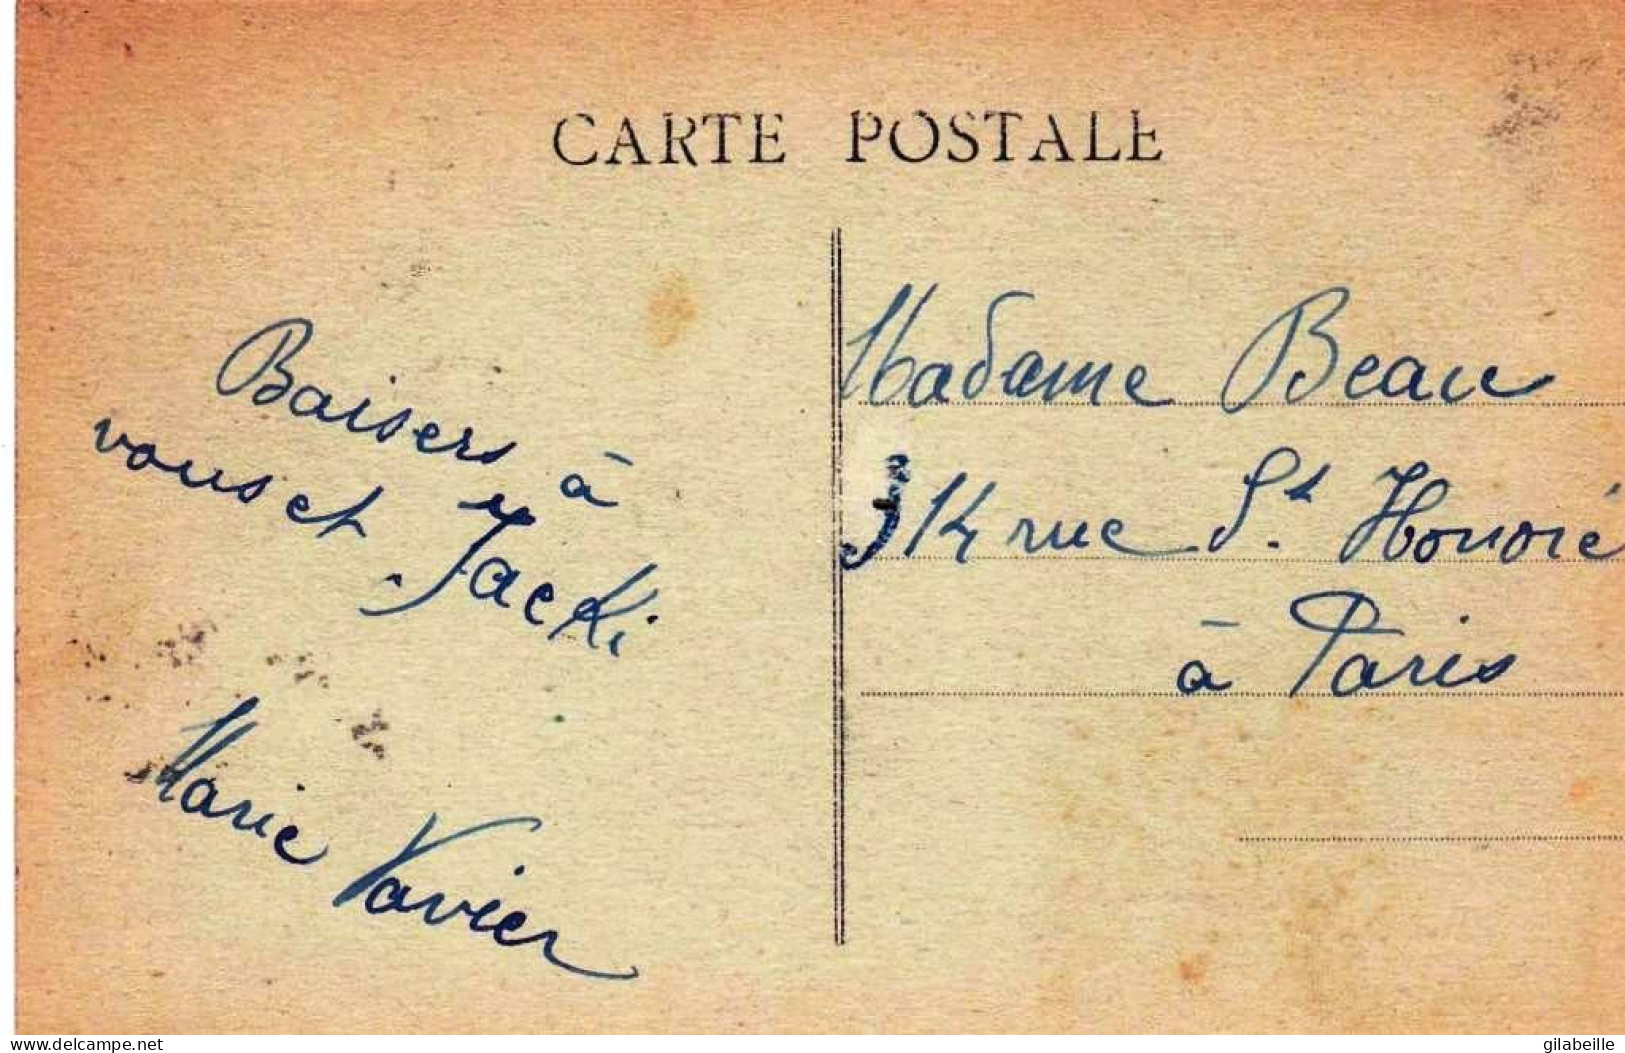 CARTE POSTALE
Baisers à
vous et
Jacki
Marie Vavier
Madame Beau
314 rue St. Honoré
à Paris
delcampe.net
gilabeille